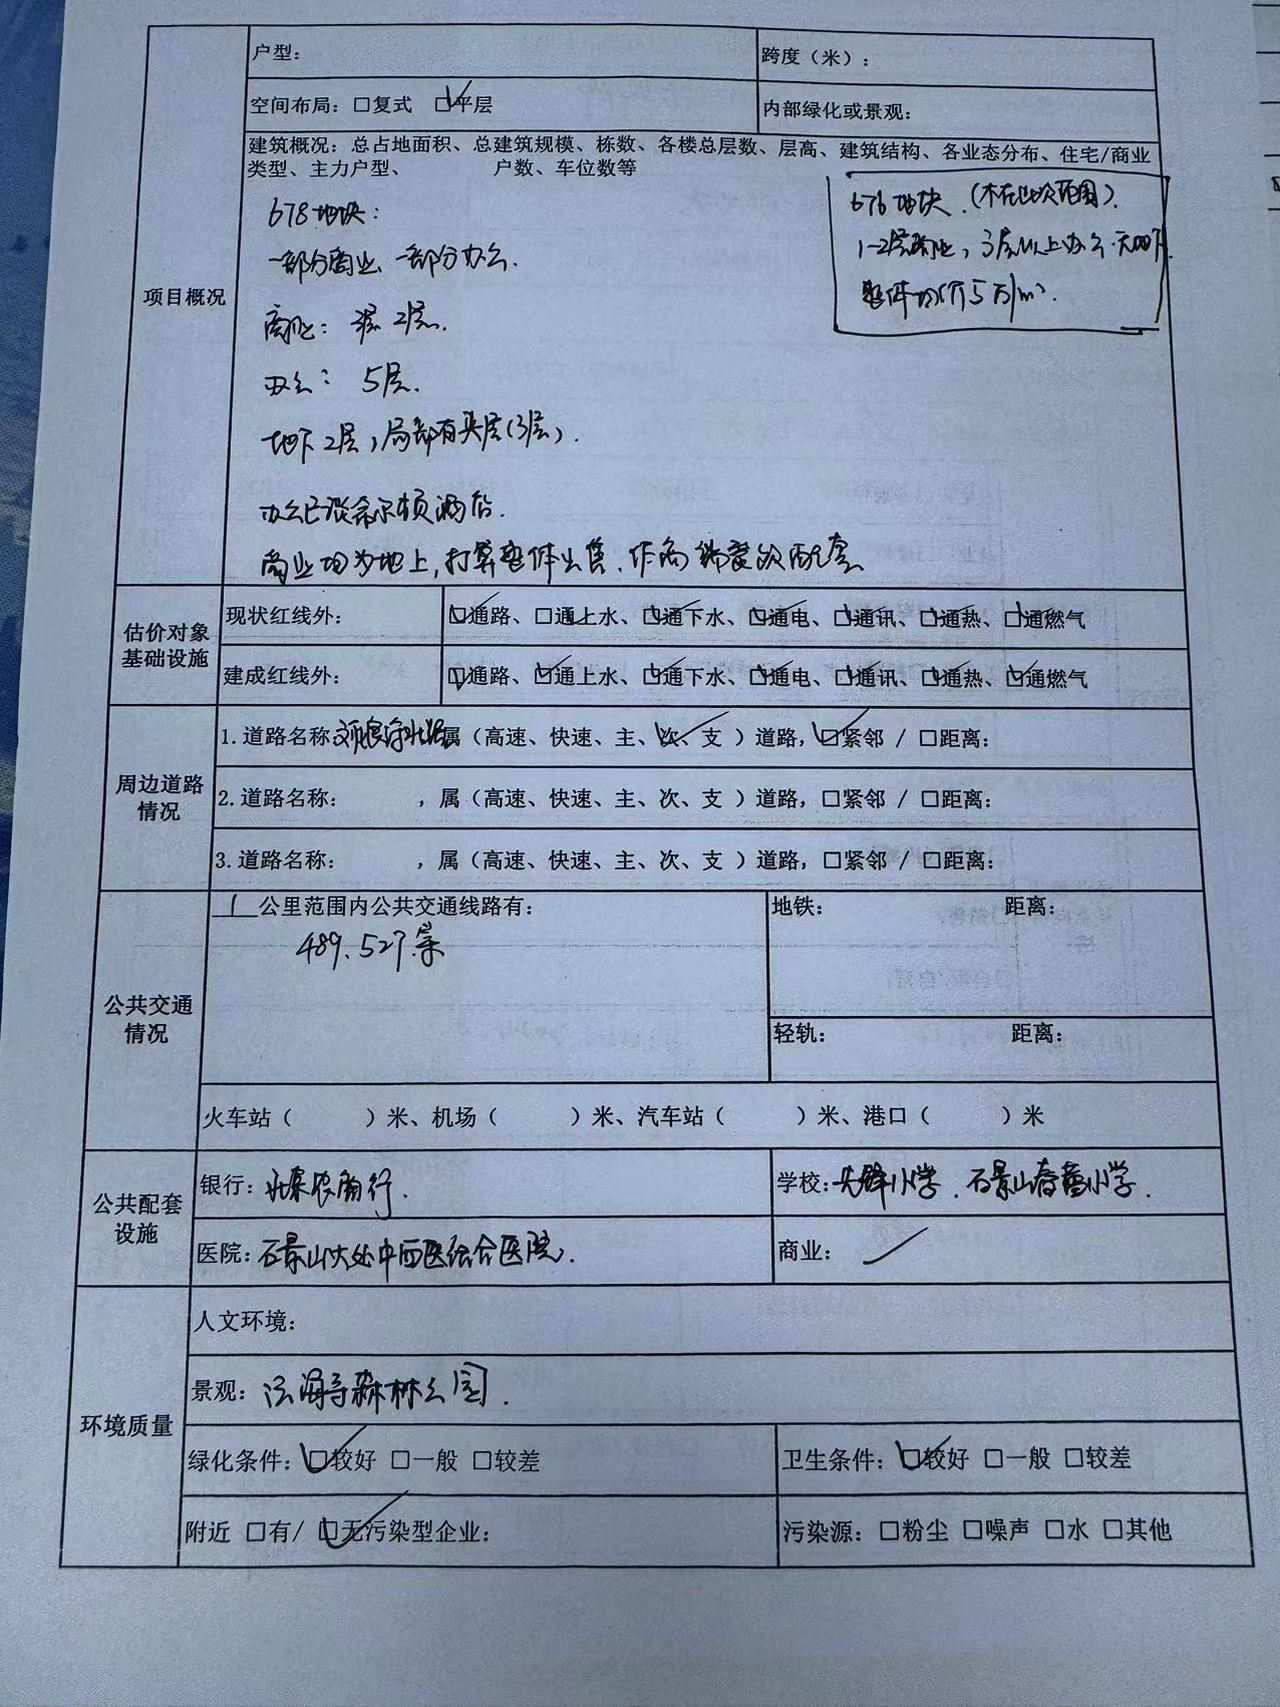 户型：
跨度（米）：
空间布局：□复式 ☑平层
内部绿化或景观：
建筑概况：总占地面积、总建筑规模、栋数、各楼总层数、层高、建筑结构、各业态分布、住宅/商业
类型、主力户型、 户数、车位数等
678地块：
一部分商业、一部分办公.
商业： 2层.
办公： 5层.
地下2层，局部有夹层(3层).
办公已谈希尔顿酒店.
商业均为地上，打算整体出售.作为 配套
676地块.(不在此次范围).
1-2层商业，3层以上办公.无地下.
整体均价5万/m².
项目概况
估价对象
基础设施
现状红线外：
☑通路、□通上水、☑通下水、☑通电、☑通讯、☑通热、☑通燃气
建成红线外：
☑通路、☑通上水、☑通下水、☑通电、☑通讯、☑通热、☑通燃气
周边道路
情况
1.道路名称: 属（高速、快速、主、次、支 ）道路，☑紧邻 / □距离：
2.道路名称： ，属（高速、快速、主、次、支 ）道路，□紧邻 / □距离：
3.道路名称： ，属（高速、快速、主、次、支 ）道路，□紧邻 / □距离：
公共交通
情况
1公里范围内公共交通线路有：
489.527.等
地铁： 距离：
轻轨： 距离：
火车站（ ）米、机场（ ）米、汽车站（ ）米、港口（ ）米
公共配套
设施
银行：北京农商行.
学校：先锋小学.石景山春蕾小学.
医院：石景山大处中西医结合医院.
商业：
环境质量
人文环境：
景观：法海寺森林公园.
绿化条件：☑较好 □一般 □较差
卫生条件：☑较好 □一般 □较差
附近 □有/ ☑无污染型企业：
污染源：□粉尘 □噪声 □水 □其他